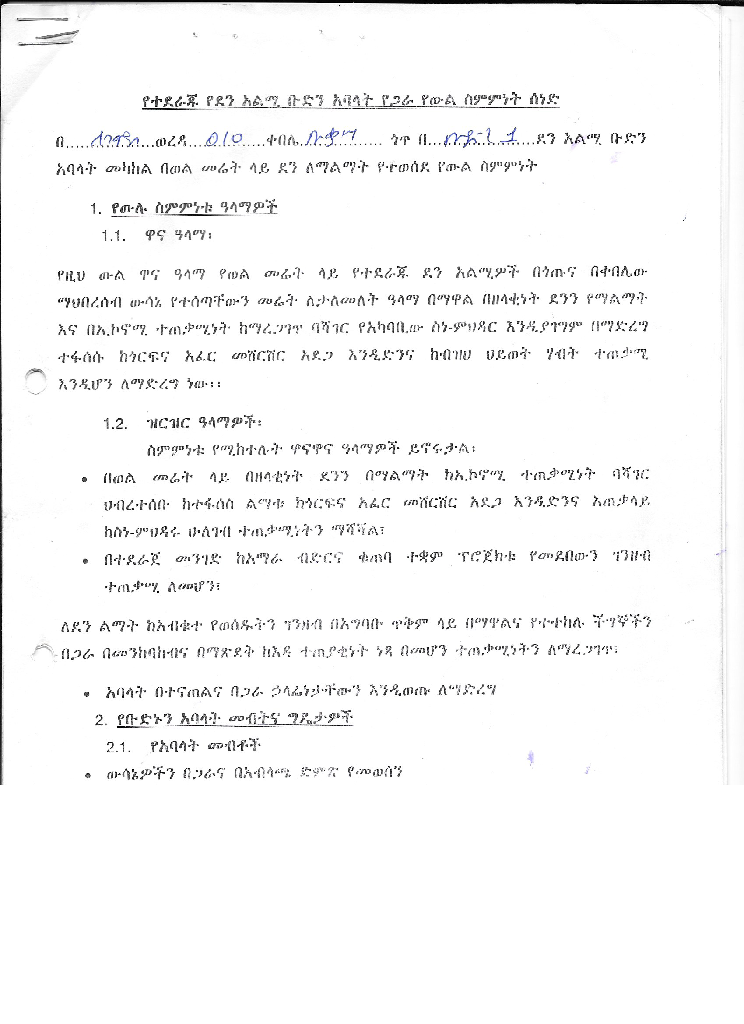 የተደራጁ የደን አልሚ ቡድን አባላት የጋራ የውል ስምምነት ሰነድ
በ.....ወረዳ...010...ቀበሌ...... ጎጥ በ.....1...ደን አልሚ ቡድን
አባላት መካከል በወል መሬት ላይ ደን ለማልማት የተወሰደ የውል ስምምነት
1. የውሉ ስምምነቱ ዓላማዎች
1.1. ዋና ዓላማ፡
የዚህ ውል ዋና ዓላማ የወል መሬት ላይ የተደራጁ ደን አልሚዎች በጎጡና በቀበሌው
ማህበረሰብ ውሳኔ የተሰጣቸውን መሬት ለታለመለት ዓላማ በማዋል በዘላቂነት ደንን የማልማት
እና በኢኮኖሚ ተጠቃሚነት ከማረጋገጥ ባሻገር የአካባቢው ስነ-ምህዳር እንዲያገግም በማድረግ
ተፋሰሱ ከጎርፍና አፈር መሸርሸር አደጋ እንዲድንና ከብዝሀ ህይወት ሃብት ተጠቃሚ
እንዲሆን ለማድረግ ነው፡፡
1.2. ዝርዝር ዓላማዎች፡
ስምምነቱ የሚከተሉት ዋናዋና ዓላማዎች ይኖሩታል፤
• በወል መሬት ላይ በዘላቂነት ደንን በማልማት ከኢኮኖሚ ተጠቃሚነት ባሻገር
ህብረተሰቡ ከተፋሰስ ልማቱ ከጎርፍና አፈር መሸርሸር አደጋ እንዲድንና አጠቃላይ
ከስነ-ምህዳሩ ሁለገብ ተጠቃሚነትን ማሻሻል፤
• በተደራጀ መንገድ ከአማራ ብድርና ቁጠባ ተቋም ፕሮጀክቱ የመደበውን ገንዘብ
ተጠቃሚ ለመሆን፤
ለደን ልማት ከአብቁተ የወሰዱትን ገንዘብ በአግባቡ ጥቅም ላይ በማዋልና የተተከሉ ችግኞችን
በጋራ በመንከባከብና በማጽደት ከእዳ ተጠያቂነት ነጻ በመሆን ተጠቃሚነትን ለማረጋገጥ፤
• አባላት በተናጠልና በጋራ ኃላፊነታቸውን እንዲወጡ ለማድረግ
2. የቡድኑን አባላት መብትና ግዴታዎች
2.1. የአባላት መብቶች
• ውሳኔዎችን በጋራና በአብላጫ ድምጽ የመወሰን